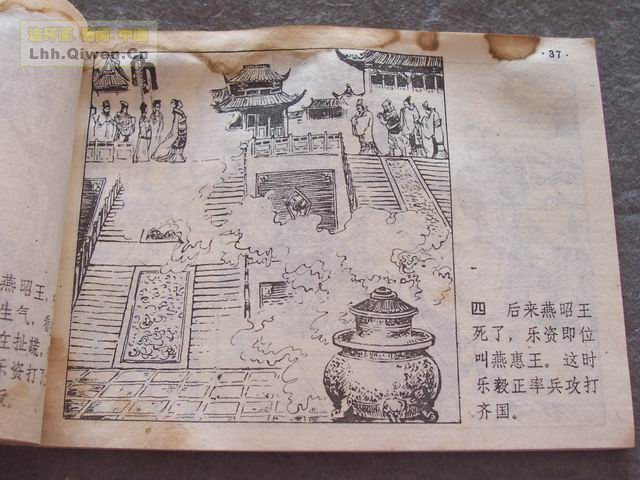 读环画.看网.中国
Lhh.Qiwen.Cn
·37·
燕昭王,
生气,看
在扯謊,
乐资打了
四 后来燕昭王
死了，乐资即位
叫燕惠王。这时
乐毅正率兵攻打
齐国。